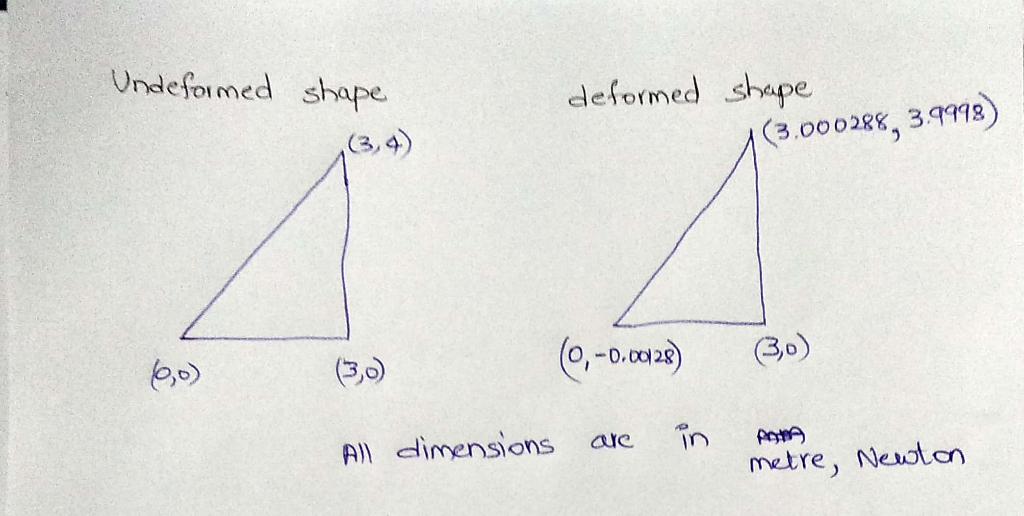 Undeformed shape
deformed shape
(3,4)
(3.000288, 3.9998)
(0,0)
(3,0)
(0,-0.00128)
(3,0)
All dimensions are in
metre, Newton